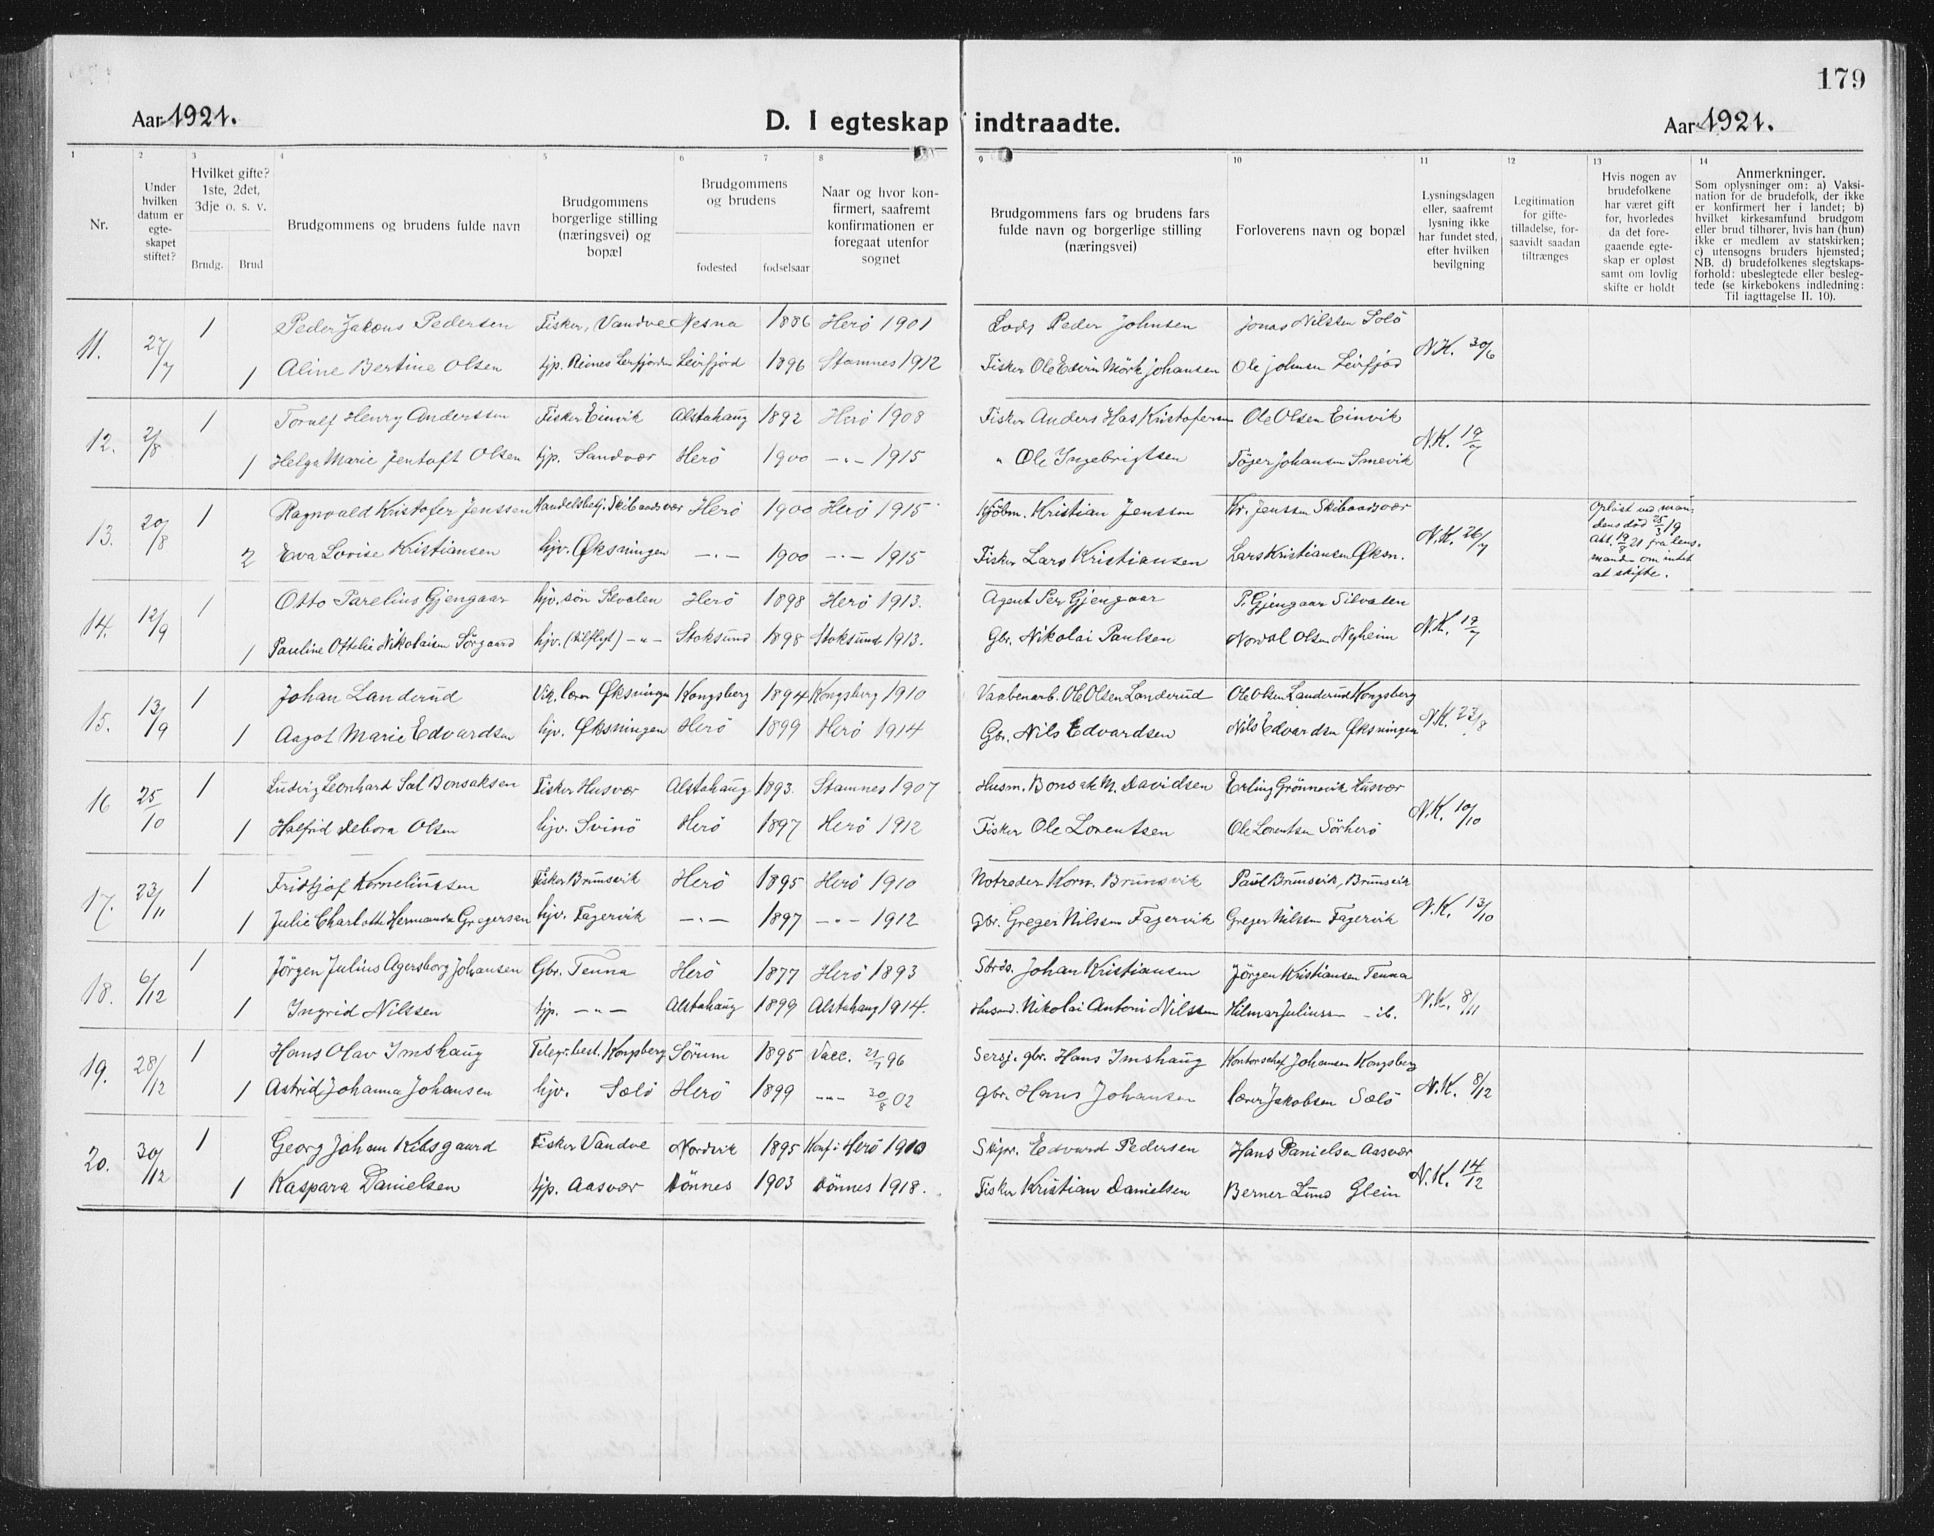 179
Aar 1921.
D. I egteskap indtraadte.
Aar 1921.
1 2 3 4 5 6 7 8 9 10 11 12 13 14
Nr.
Under hvilken datum er egte-skapet stiftet?
Hvilket gifte? 1ste, 2det, 3dje o. s. v.
Brudg. Brud
Brudgommens og brudens fulde navn
Brudgommens borgerlige stilling (næringsvei) og bopæl
Brudgommens og brudens
fødested fødselsaar
Naar og hvor kon-firmert, saafremt konfirmationen er foregaat utenfor sognet
Brudgommens fars og brudens fars fulde navn og borgerlige stilling (næringsvei)
Forloverens navn og bopæl
Lysningsdagen eller, saafremt lysning ikke har fundet sted, efter hvilken bevilgning
Legitimation for gifte-tilladelse, for-saavidt saadan tiltrænges
Hvis nogen av brudefolkene har været gift før, hvorledes da det fore-gaaende egte-skap er opløst samt om lovlig skifte er holdt
Anmerkninger.
Som oplysninger om: a) Vaksi-nation for de brudefolk, der ikke er konfirmert her i landet; b) hvilket kirkesamfund brudgom eller brud tilhører, hvis han (hun) ikke er medlem av statskirken; c) utensogns bruders hjemsted; NB. d) brudefolkenes slegtskaps-forhold: ubeslegtede eller besleg-tede (se kirkebokens indledning: Til iagttagelse II. 10).
11. 27/7 1 Peder Jakons Pedersen Fisker, Vandve Nesna 1886 Herö 1901 Lods Peder Johnsen Jonas Nilssen Solö N.K. 30/6
1 Aline Bertine Olsen tjp. Reines Leirfjorden Leirfjord 1896 Stamnes 1912 Fisker Ole Edvin Mörk Johansen Ole Johnsen Leirfjord
12. 2/8 1 Toralf Henry Anderssen Fisker Einvik Alstahaug 1892 Herö 1908 Fisker Anders Has Kristofersen Ole Olsen Einvik N.K. 19/7
1 Helga Marie Jentoft Olsen tjp. Sandvær Herö 1900 -"- 1915 " Ole Ingebrigtsen Töger Johansen Smevik
13. 20/8 1 Ragnvald Kristofer Jenssen Handelsbetj. Skibaadsvær Herö 1900 Herö 1915 Kjöbm. Kristian Jenssen Kr. Jenssen Skibaadsvær N.K. 26/7 Oplöst ved man-
dens död 25/3 19
Att. 19/8 21 fra lens-
mand om intet
at skifte.
2 Eva Lovise Kristiansen hjv. Øksningen -"- 1900 -"- 1915 Fisker Lars Kristiansen Lars Kristiansen Øksn.
14. 12/9 1 Otto Parelius Gjengaar hjv. sön Silvalen Herö 1898 Herö 1913. Agent Per Gjengaar P. Gjengaar Silvalen N.K. 19/7
1 Pauline Ottelie Nikolaisen Sörgaard hjv. (tilflyt) -"- Stoksund 1898 Stoksund 1913. Gbr. Nikolai Paulsen Norval Olsen Nyheim
15. 13/9 1 Johan Landerud Vik. lærer Øksningen Kongsberg 1894 Kongsberg 1910 Vaabenarb. Ole Olsen Landerud Ole Olsen Landerud Kongsberg N.K. 23/8
1 Aagot Marie Edvardsen hjv. Øksningen Herö 1899 Herö 1914 Gbr. Nils Edvardsen Nils Edvardsen Øksningen
16 25/10 1 Ludvig Leonhard Sæl Bonsaksen Fisker Husvær Alstahaug 1893. Stamnes 1907 Husm. Bonsak M. Davidsen Erling Grönnevik Husvær N.K. 10/10
1 Halfrid Debora Olsen hjv. Svinö Herö 1897 Herö 1912 Fisker Ole Lorentsen Ole Lorentsen Sörherö
17. 23/11 1 Fridtjof Korneliussen Fisker Brunsvik Herö 1895 Herö 1910 Notreder Korn. Brunsvik Paul Brunsvik, Brunsvik N.K. 13/10
1 Julie Charlotte Hermanda Gregersen hjv. Fagervik -"- 1897 -"- 1912 gbr. Greger Nilssen Fagervik Greger Nilssen Fagervik
18. 6/12 1 Jörgen Julius Agersborg Johansen Gbr. Tenna Herö 1877 Herö 1893 Johan Kristiansen Jörgen Kristiansen Tenna N.K. 8/11
1 Ingrid Nilssen tjp. -"- Alstahaug 1899 Alstahaug 1914. Husmd. Nikolai Antoni Nilssen Hilmar Juliussen - ib.
19. 28/12 1 Hans Olav Imshaug Telegr.best. Kongsberg Sörum 1895 Vacc. 21/7 96 Sersj. gbr. Hans Imshaug Kontorschef Johansen Kongsberg N.K. 8/12
1 Astrid Johanna Johansen hjv. Sælö Herö 1899 -"- 30/8 02 gbr. Hans Johansen lærer Jakobsen Sælö
20. 30/12 1 Georg Johan Kilsgaard Fisker Vandve Nordvik 1895 Konf. i Herö 1910 Skipr. Edvard Pedersen Hans Danielsen Aasvær N.K. 14/12
1 Kaspara Danielsen tjp. Aasvær Dönnes 1903 Dönnes 1918. Fisker Kristian Danielsen Berner Lund Glein